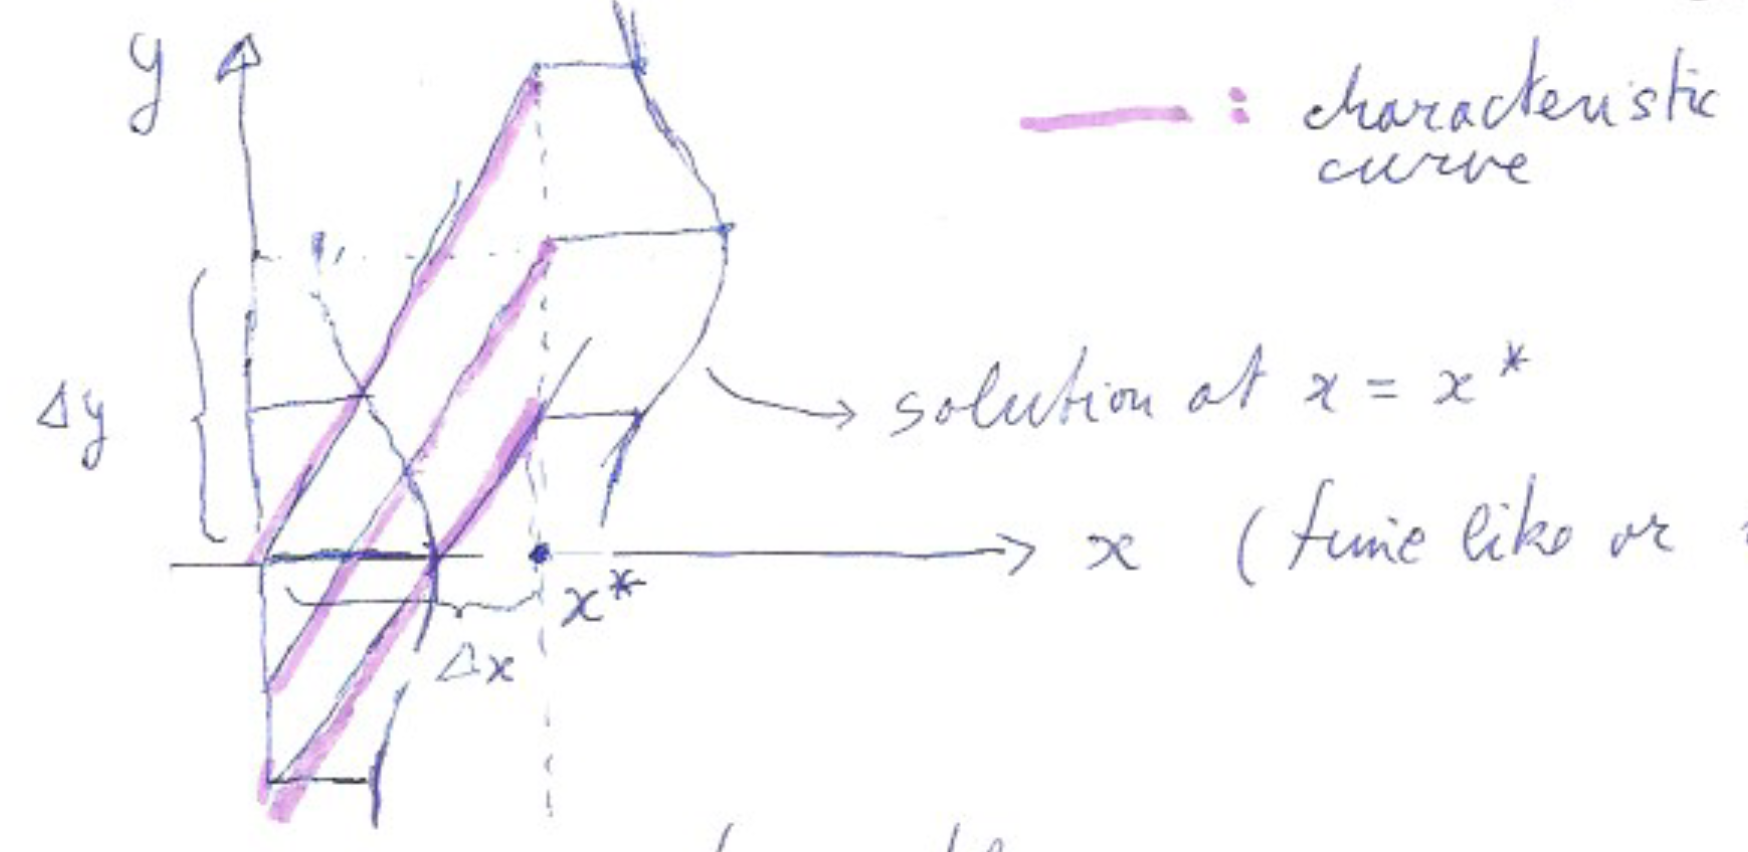 y
: characteristic
curve
Δy
solution at x = x*
x (time like or
x*
Δx